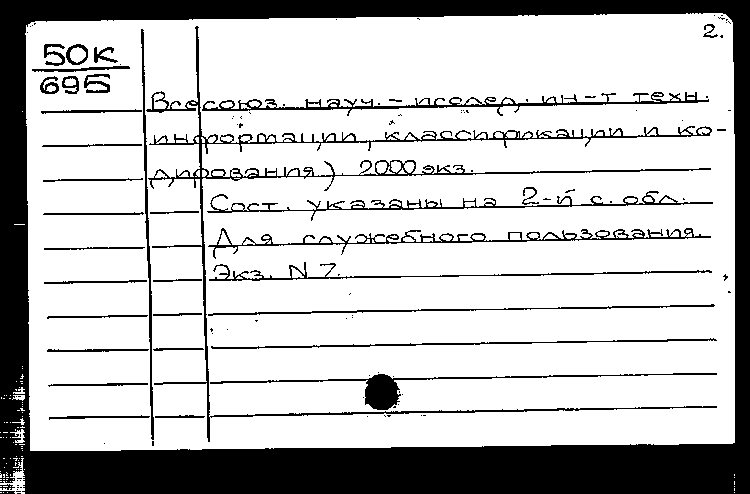 2.
50К
695
Всесоюз. науч.-исслед. ин-т техн.
информации, классификации и ко-
дирования). 2000 экз.
Сост. указаны на 2-й с. обл.
Для служебного пользования.
Экз. N 7.